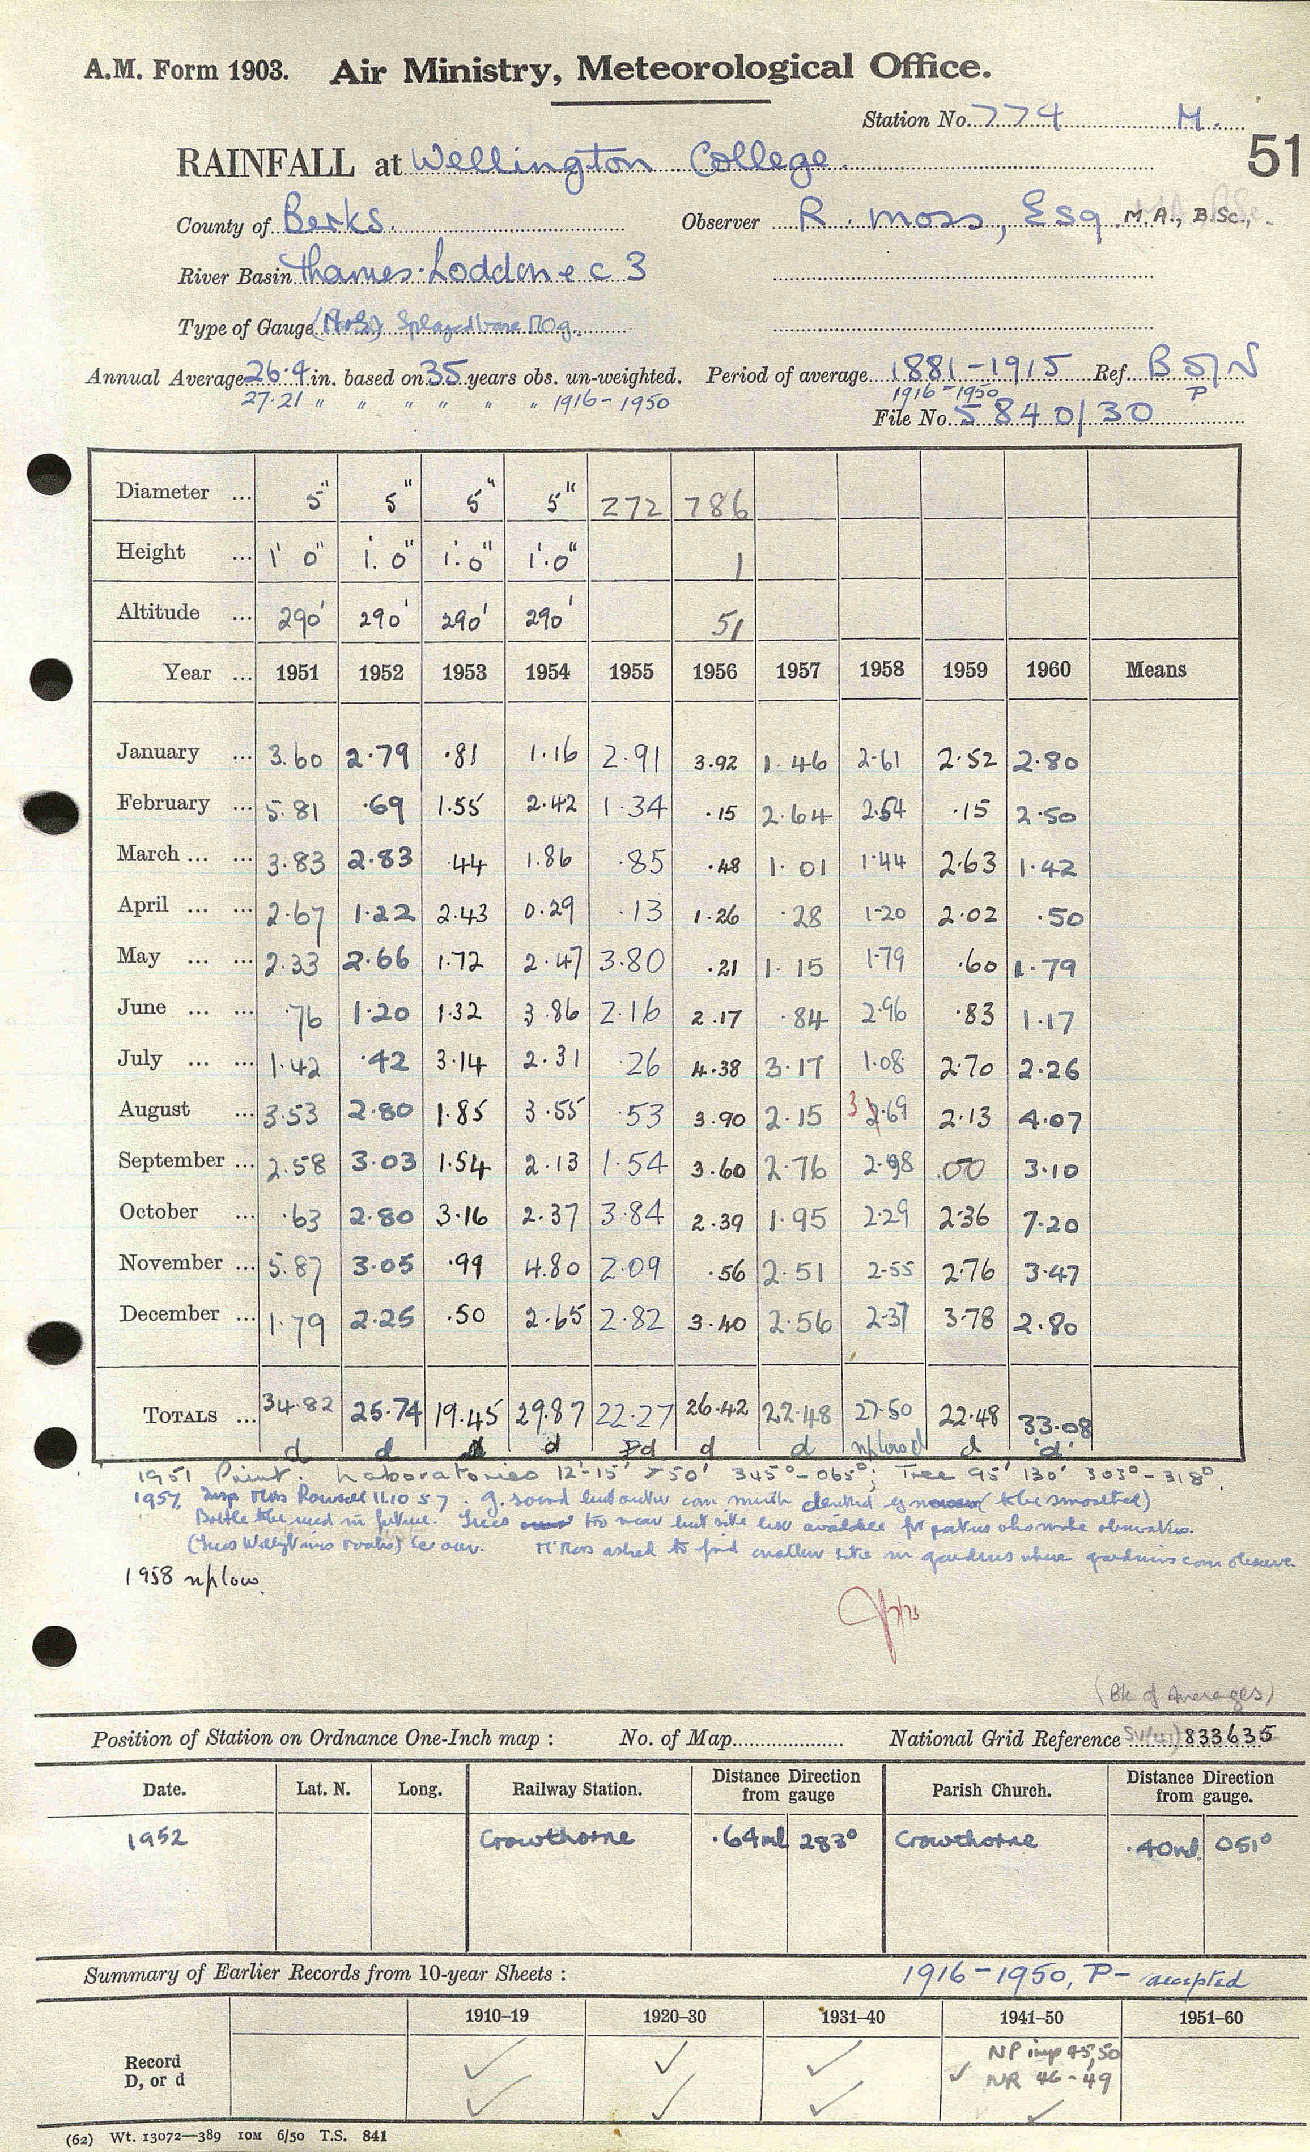 A.M. Form 1903. Air Ministry, Meteorological Office.
Station No. 774 M.
51
RAINFALL at Wellington College.
County of Berks. Observer R. Moss, Esq. M.A., B.Sc.,
River Basin Thames: Loddon e c 3
Type of Gauge
Annual Average 26.4 in. based on 35 years obs. un-weighted. Period of average 1881-1915 Ref. B
27.21 " " " " " " 1916-1950 1916-1950 P
File No. 5840/30
Diameter ... 5" 5" 5" 5" 272 786
Height ... 1' 0" 1'. 0" 1'.0" 1'.0" 1
Altitude ... 290' 290' 290' 290' 51
Year ... 1951 1952 1953 1954 1955 1956 1957 1958 1959 1960 Means
January ... 3.60 2.79 .81 1.16 2.91 3.92 1.46 2.61 2.52 2.80
February ... 5.81 .69 1.55 2.42 1.34 .15 2.64 2.54 .15 2.50
March ... ... 3.83 2.83 .44 1.86 .85 .48 1.01 1.44 2.63 1.42
April ... ... 2.67 1.22 2.43 0.29 .13 1.26 .28 1.20 2.02 .50
May ... ... 2.33 2.66 1.72 2.47 3.80 .21 1.15 1.79 .60 1.79
June ... ... .76 1.20 1.32 3.86 2.16 2.17 .84 2.96 .83 1.17
July ... ... 1.42 .42 3.14 2.31 .26 4.38 3.17 1.08 2.70 2.26
August ... 3.53 2.80 1.85 3.55 .53 3.90 2.15 3 2.69 2.13 4.07
September ... 2.58 3.03 1.54 2.13 1.54 3.60 2.76 2.98 .00 3.10
October ... .63 2.80 3.16 2.37 3.84 2.39 1.95 2.29 2.36 7.20
November ... 5.87 3.05 .99 4.80 2.09 .56 2.51 2.55 2.76 3.47
December ... 1.79 2.25 .50 2.65 2.82 3.40 2.56 2.37 3.78 2.80
TOTALS ... 34.82 25.74 19.45 29.87 22.27 26.42 22.48 27.50 22.48 33.08
d d d d d d d d 'd'
1951 Print. Laboratories 12'-15' 50' 345°-065°; Tree 95' 130' 303°-318°
1957 Insp Miss Rowsell 11.10.57. G. sound but outer can much dented (to be smoothed)
Bottle to be used in future. Trees too near but site best available for
Moss asked to find another site in gardens where gardeners can observe.
1958 nplow.
(Bk of Averages)
Position of Station on Ordnance One-Inch map : No. of Map National Grid Reference 833635
Date. Lat. N. Long. Railway Station. Distance Direction from gauge Parish Church. Distance Direction from gauge.
1952 Crowthorne .64ml 283° Crowthorne .40ml. 051°
Summary of Earlier Records from 10-year Sheets : 1916-1950, P- accepted
1910–19 1920–30 1931–40 1941–50 1951–60
Record
D, or d
NP inup 45,50
NR 46-49
(62) Wt. 13072—389 10M 6/50 T.S. 841